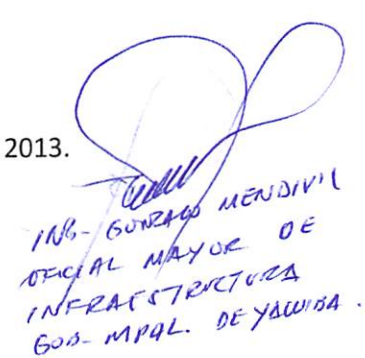 2013.
ING- GONZALO MENDIVIL
OFICIAL MAYOR DE
INFRAESTRUCTURA
GOB- MPAL. DE YACUIBA.